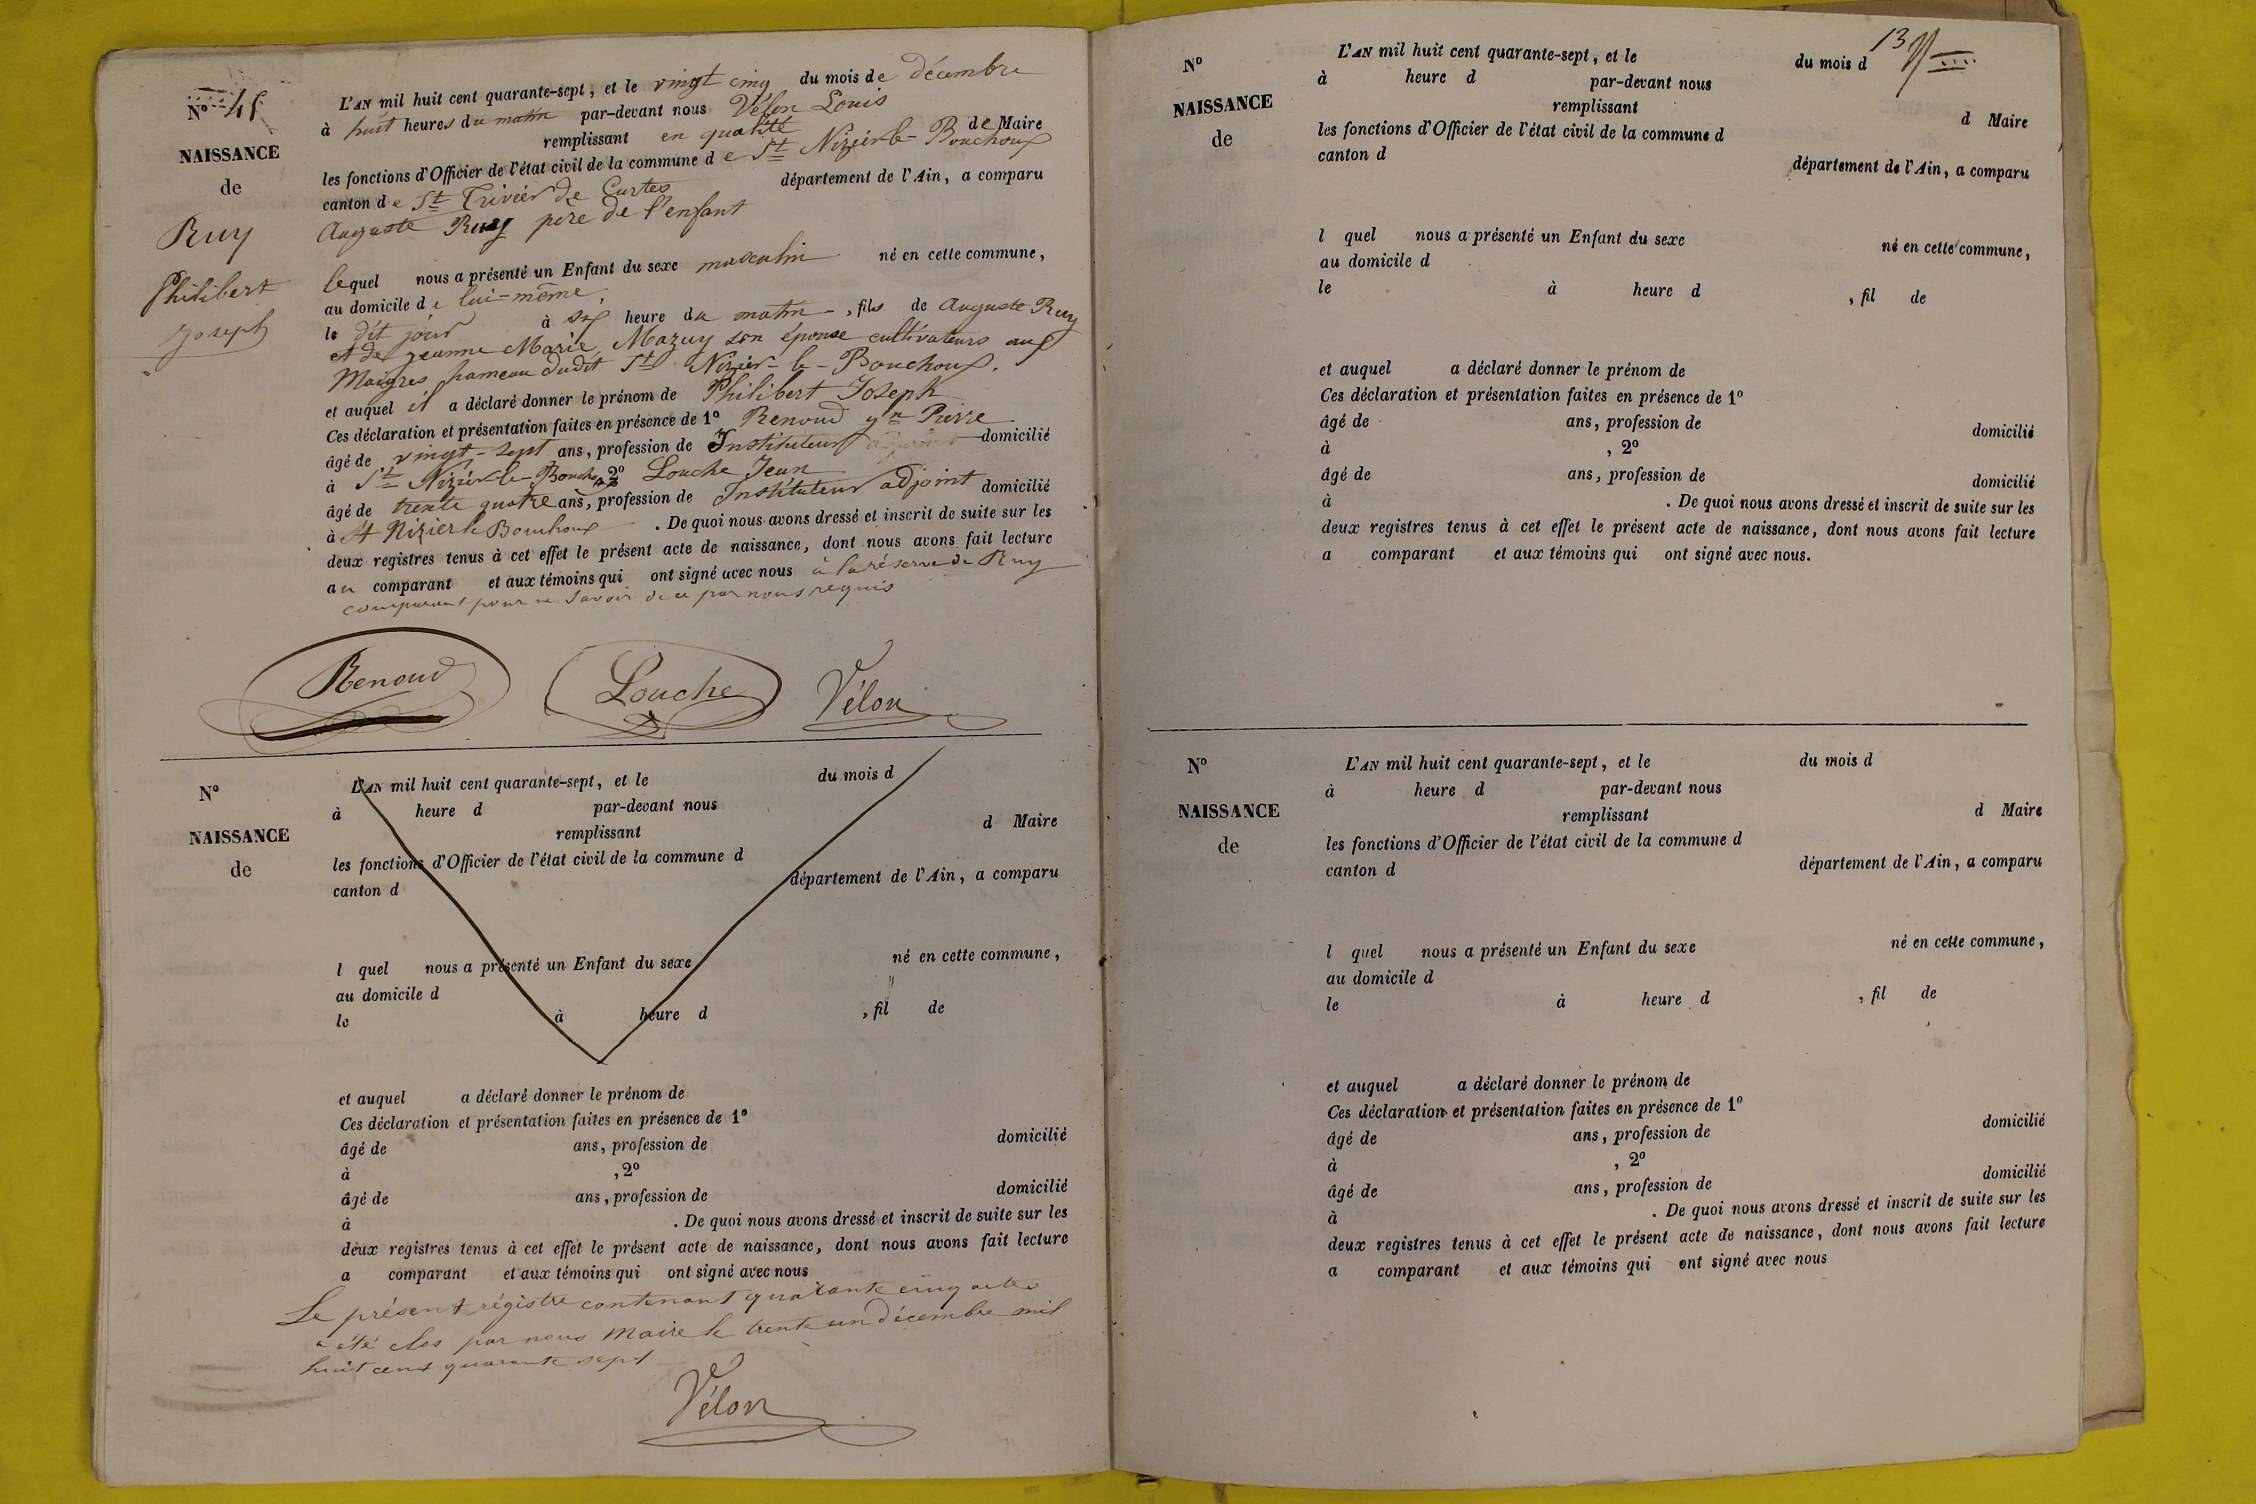 N° 45
NAISSANCE
de
Ruy
Philibert
Joseph
L'AN mil huit cent quarante-sept, et le vingt cinq du mois de décembre
à huit heures du matin par-devant nous Vélon Louis
remplissant en qualité de Maire
les fonctions d'Officier de l'état civil de la commune de St Nizier-le-Bouchoux
canton de St Trivier de Curtes département de l'Ain, a comparu
Auguste Ruy père de l'enfant
lequel nous a présenté un Enfant du sexe masculin né en cette commune,
au domicile de lui-même,
le dit jour à six heure du matin, fils de Auguste Ruy
et de jeanne Marie Mazuy son épouse cultivateurs aux
Maigres hameau dudit St Nizier-le-Bouchoux.
et auquel il a déclaré donner le prénom de Philibert Joseph
Ces déclaration et présentation faites en présence de 1° Renoud Pierre
âgé de vingt-sept ans, profession de Instituteur domicilié
à St Nizier-le-Bouchoux 2° Louche Jean
âgé de trente quatre ans, profession de Instituteur adjoint domicilié
à St Nizier le Bouchoux. De quoi nous avons dressé et inscrit de suite sur les
deux registres tenus à cet effet le présent acte de naissance, dont nous avons fait lecture
au comparant et aux témoins qui ont signé avec nous à la réserve de Ruy
comparant pour ne savoir de ce par nous requis
Renoud Louche Vélon
N°
NAISSANCE
de
L'AN mil huit cent quarante-sept, et le du mois d
à heure d par-devant nous
remplissant d Maire
les fonctions d'Officier de l'état civil de la commune d
canton d département de l'Ain, a comparu
l quel nous a présenté un Enfant du sexe né en cette commune,
au domicile d
le à heure d , fil de
et auquel a déclaré donner le prénom de
Ces déclaration et présentation faites en présence de 1°
âgé de ans, profession de domicilié
à , 2°
âgé de ans, profession de domicilié
à . De quoi nous avons dressé et inscrit de suite sur les
deux registres tenus à cet effet le présent acte de naissance, dont nous avons fait lecture
a comparant et aux témoins qui ont signé avec nous
Le présent régistre contenant quarante cinq actes
a été clos par nous Maire le trente un décembre mil
huit cent quarante sept
Vélon
13
N°
NAISSANCE
de
L'AN mil huit cent quarante-sept, et le du mois d
à heure d par-devant nous
remplissant d Maire
les fonctions d'Officier de l'état civil de la commune d
canton d département de l'Ain, a comparu
l quel nous a présenté un Enfant du sexe né en cette commune,
au domicile d
le à heure d , fil de
et auquel a déclaré donner le prénom de
Ces déclaration et présentation faites en présence de 1°
âgé de ans, profession de domicilié
à , 2°
âgé de ans, profession de domicilié
à . De quoi nous avons dressé et inscrit de suite sur les
deux registres tenus à cet effet le présent acte de naissance, dont nous avons fait lecture
a comparant et aux témoins qui ont signé avec nous.
N°
NAISSANCE
de
L'AN mil huit cent quarante-sept, et le du mois d
à heure d par-devant nous
remplissant d Maire
les fonctions d'Officier de l'état civil de la commune d
canton d département de l'Ain, a comparu
l quel nous a présenté un Enfant du sexe né en cette commune,
au domicile d
le à heure d , fil de
et auquel a déclaré donner le prénom de
Ces déclaration et présentation faites en présence de 1°
âgé de ans, profession de domicilié
à , 2°
âgé de ans, profession de domicilié
à . De quoi nous avons dressé et inscrit de suite sur les
deux registres tenus à cet effet le présent acte de naissance, dont nous avons fait lecture
a comparant et aux témoins qui ont signé avec nous